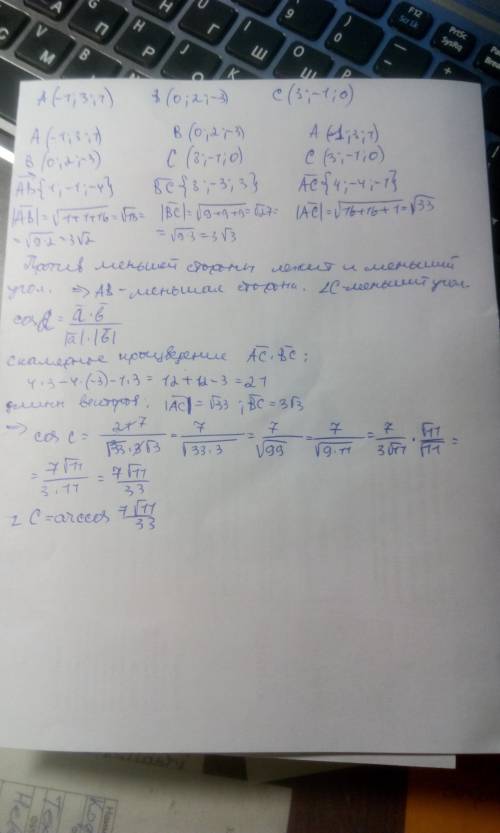 А(-1;3;1) В(0;2;-3) С(3;-1;0)
А(-1;3;1) В(0;2;-3) А(-1;3;1)
В(0;2;-3) С(3;-1;0) С(3;-1;0)
AB{1;-1;-4} BC{3;-3;3} AC{4;-4;-1}
|AB|=√1+1+16=√18= |BC|=√9+9+9=√27= |AC|=√16+16+1=√33
=√9·2=3√2 =√9·3=3√3
Против меньшей стороны лежит и меньший
угол. => АВ-меньшая сторона. ∠С-меньший угол
cos α = a·b / |a|·|b|
скалярное произведение AC·BC:
4·3-4·(-3)-1·3=12+12-3=21
длины векторов. |AC|=√33; BC=3√3
=> cos C = 217 / √33·3√3 = 7 / √33·3 = 7 / √99 = 7 / √9·11 = 7 / 3√11 · √11 / √11 =
= 7√11 / 3·11 = 7√11 / 33
∠ C=arccos 7√11 / 33